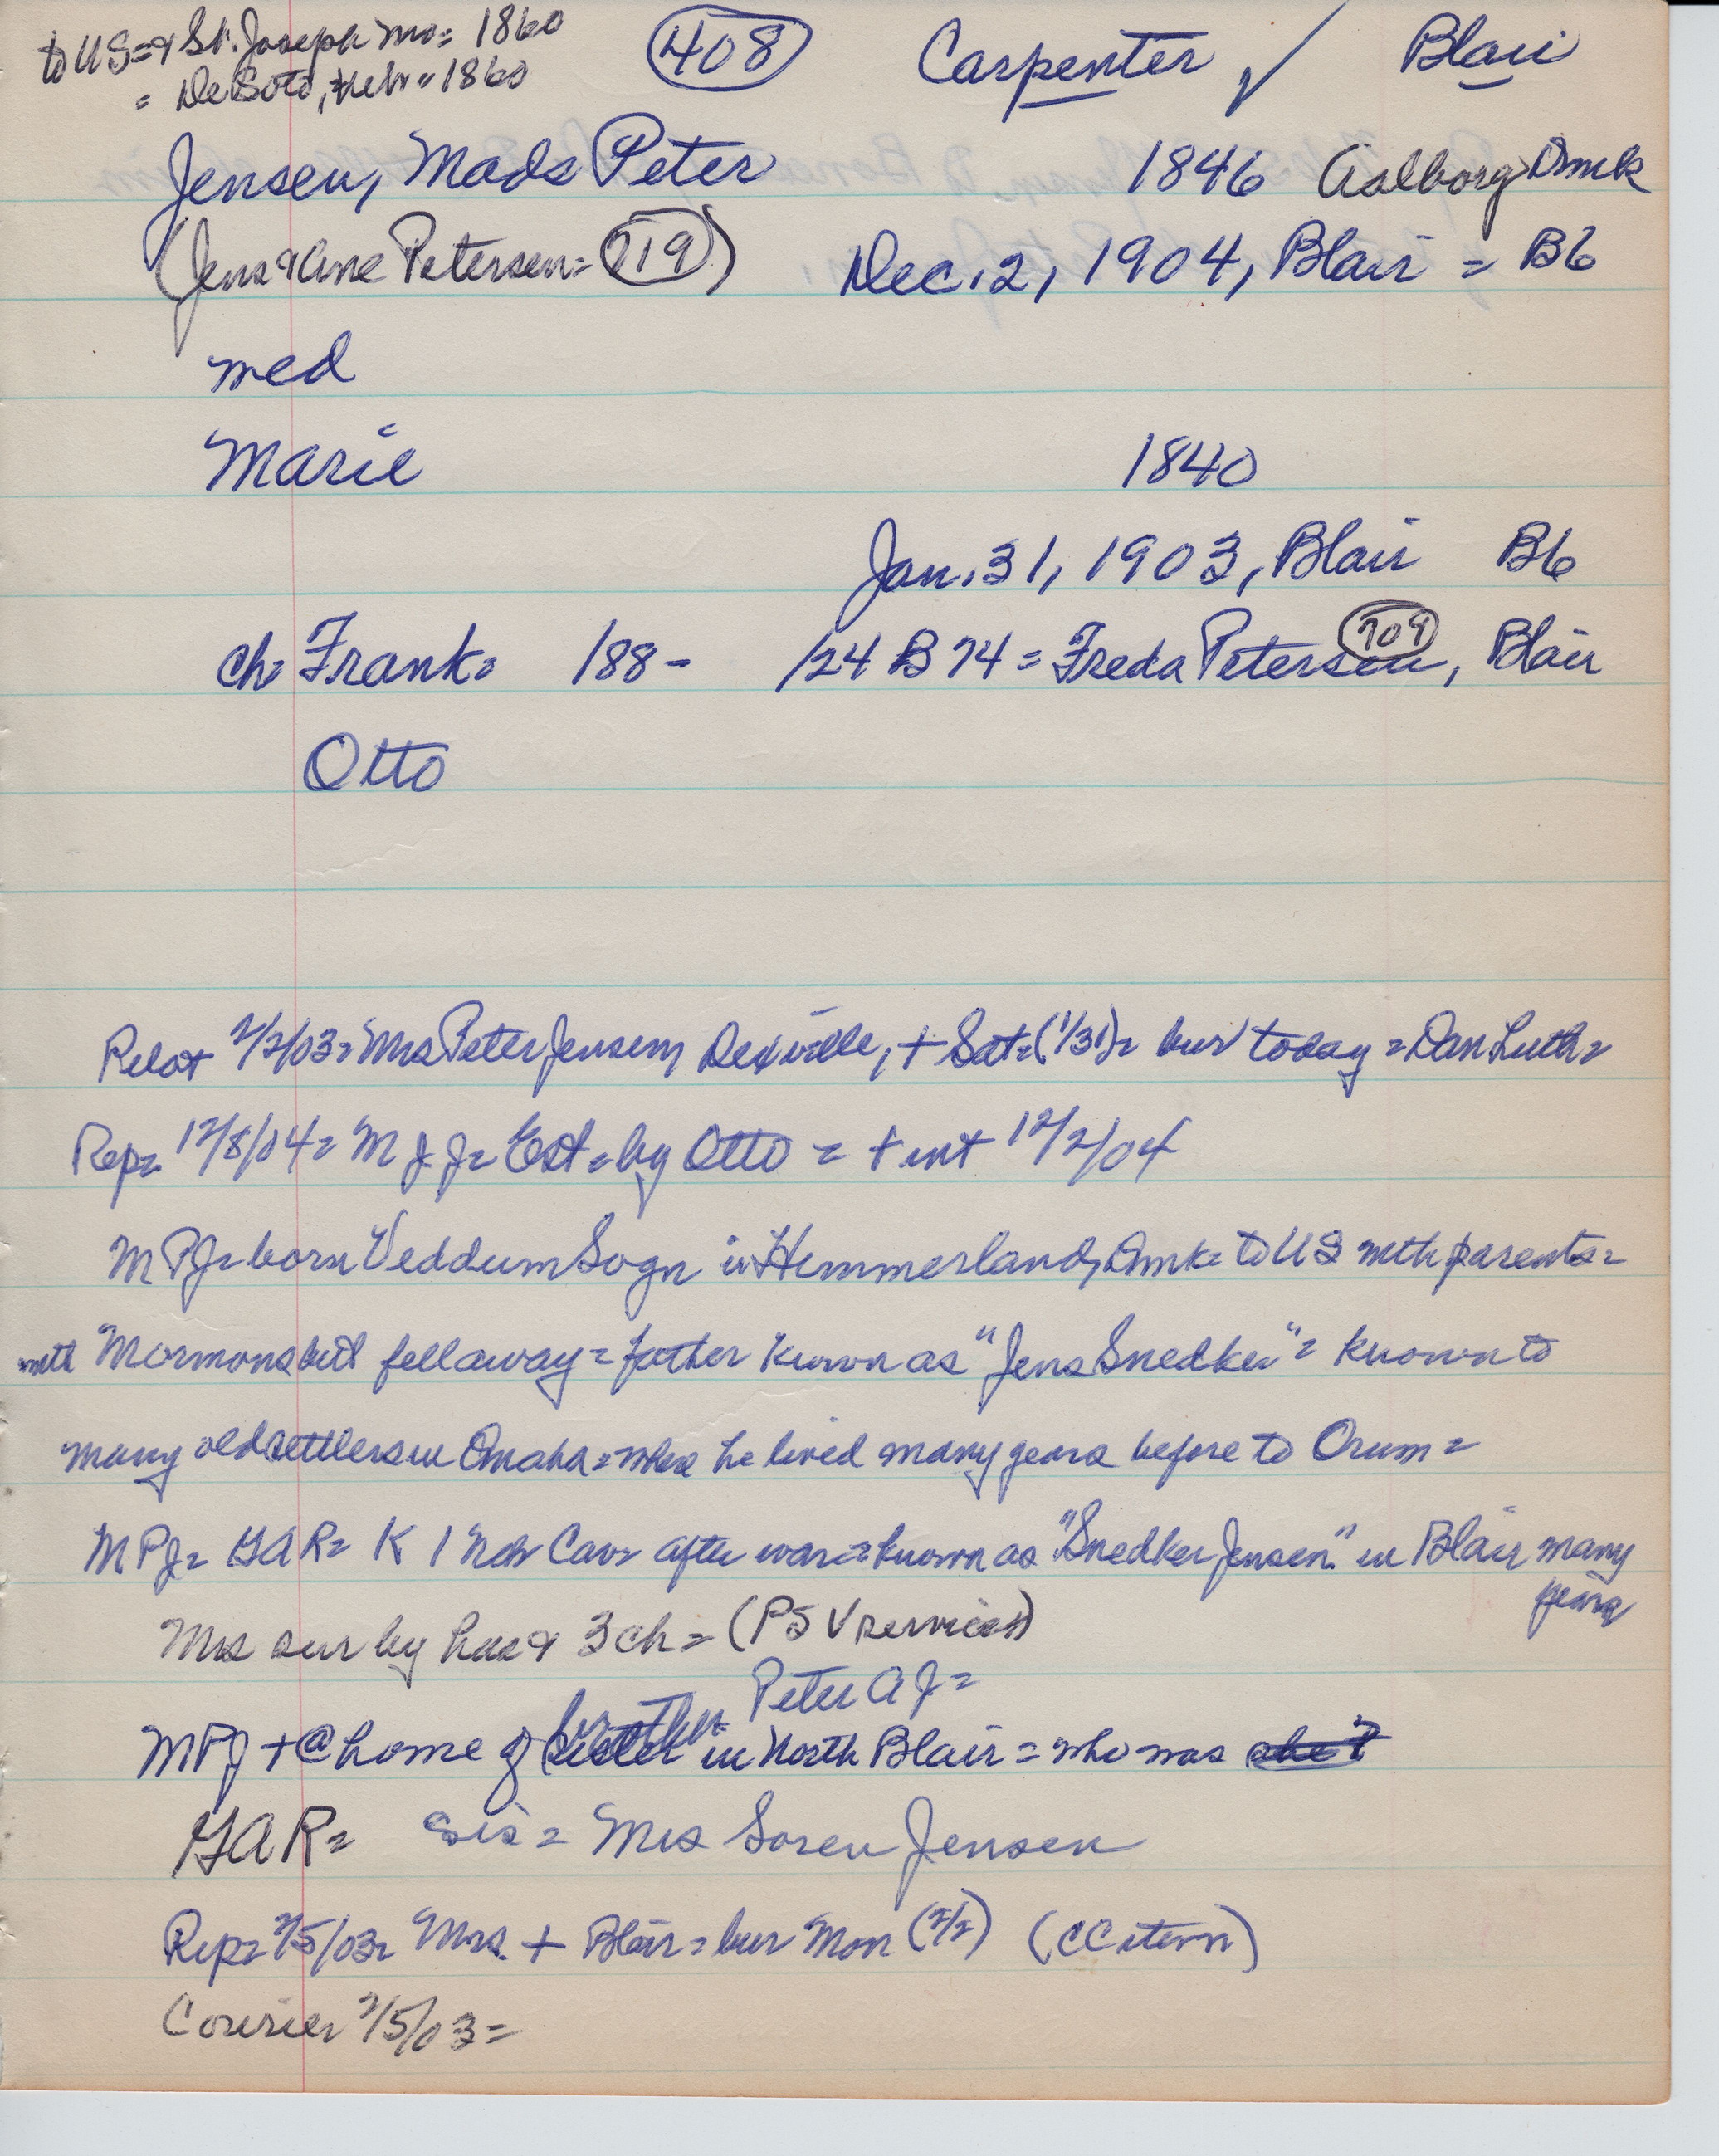 to US = & St. Joseph Mo = 1860
= DeSoto, Nebr = 1860
408 Carpenter ✓ Blair
Jensen, Mads Peter 1846 Aalborg Dmk
(Jens & Ane Petersen = 719) Dec. 2, 1904, Blair = B6
med
Marie 1840
Jan. 31, 1903, Blair B6
ch = Frank = 188- /24 B 74 = Freda Petersen 709, Blair
Otto
Pilot 2/2/03 = Mrs Peter Jensen, Dexville, + Sat = (1/31) = bur today = Dan Luth =
Rep = 12/8/04 = M J J = Est = by Otto = + int 12/2/04
M P J = born Veddum Sogn in Himmerland, Dmk = to US with parents =
with Mormons but fell away = father known as "Jens Snedker" = known to
many old settlers in Omaha = where he lived many years before to Orum =
M P J = GAR = K 1 Neb Cav = after war = known as "Snedker Jensen" in Blair many
years
Mrs sur by hus & 3 ch = (PSV services)
Peter A J =
M P J + @ home of brother in North Blair = who was
GAR = Sis = Mrs Soren Jensen
Rep = 2/5/03 = Mrs. + Blair = bur Mon (2/2) (CC item)
Courier 2/5/03 =